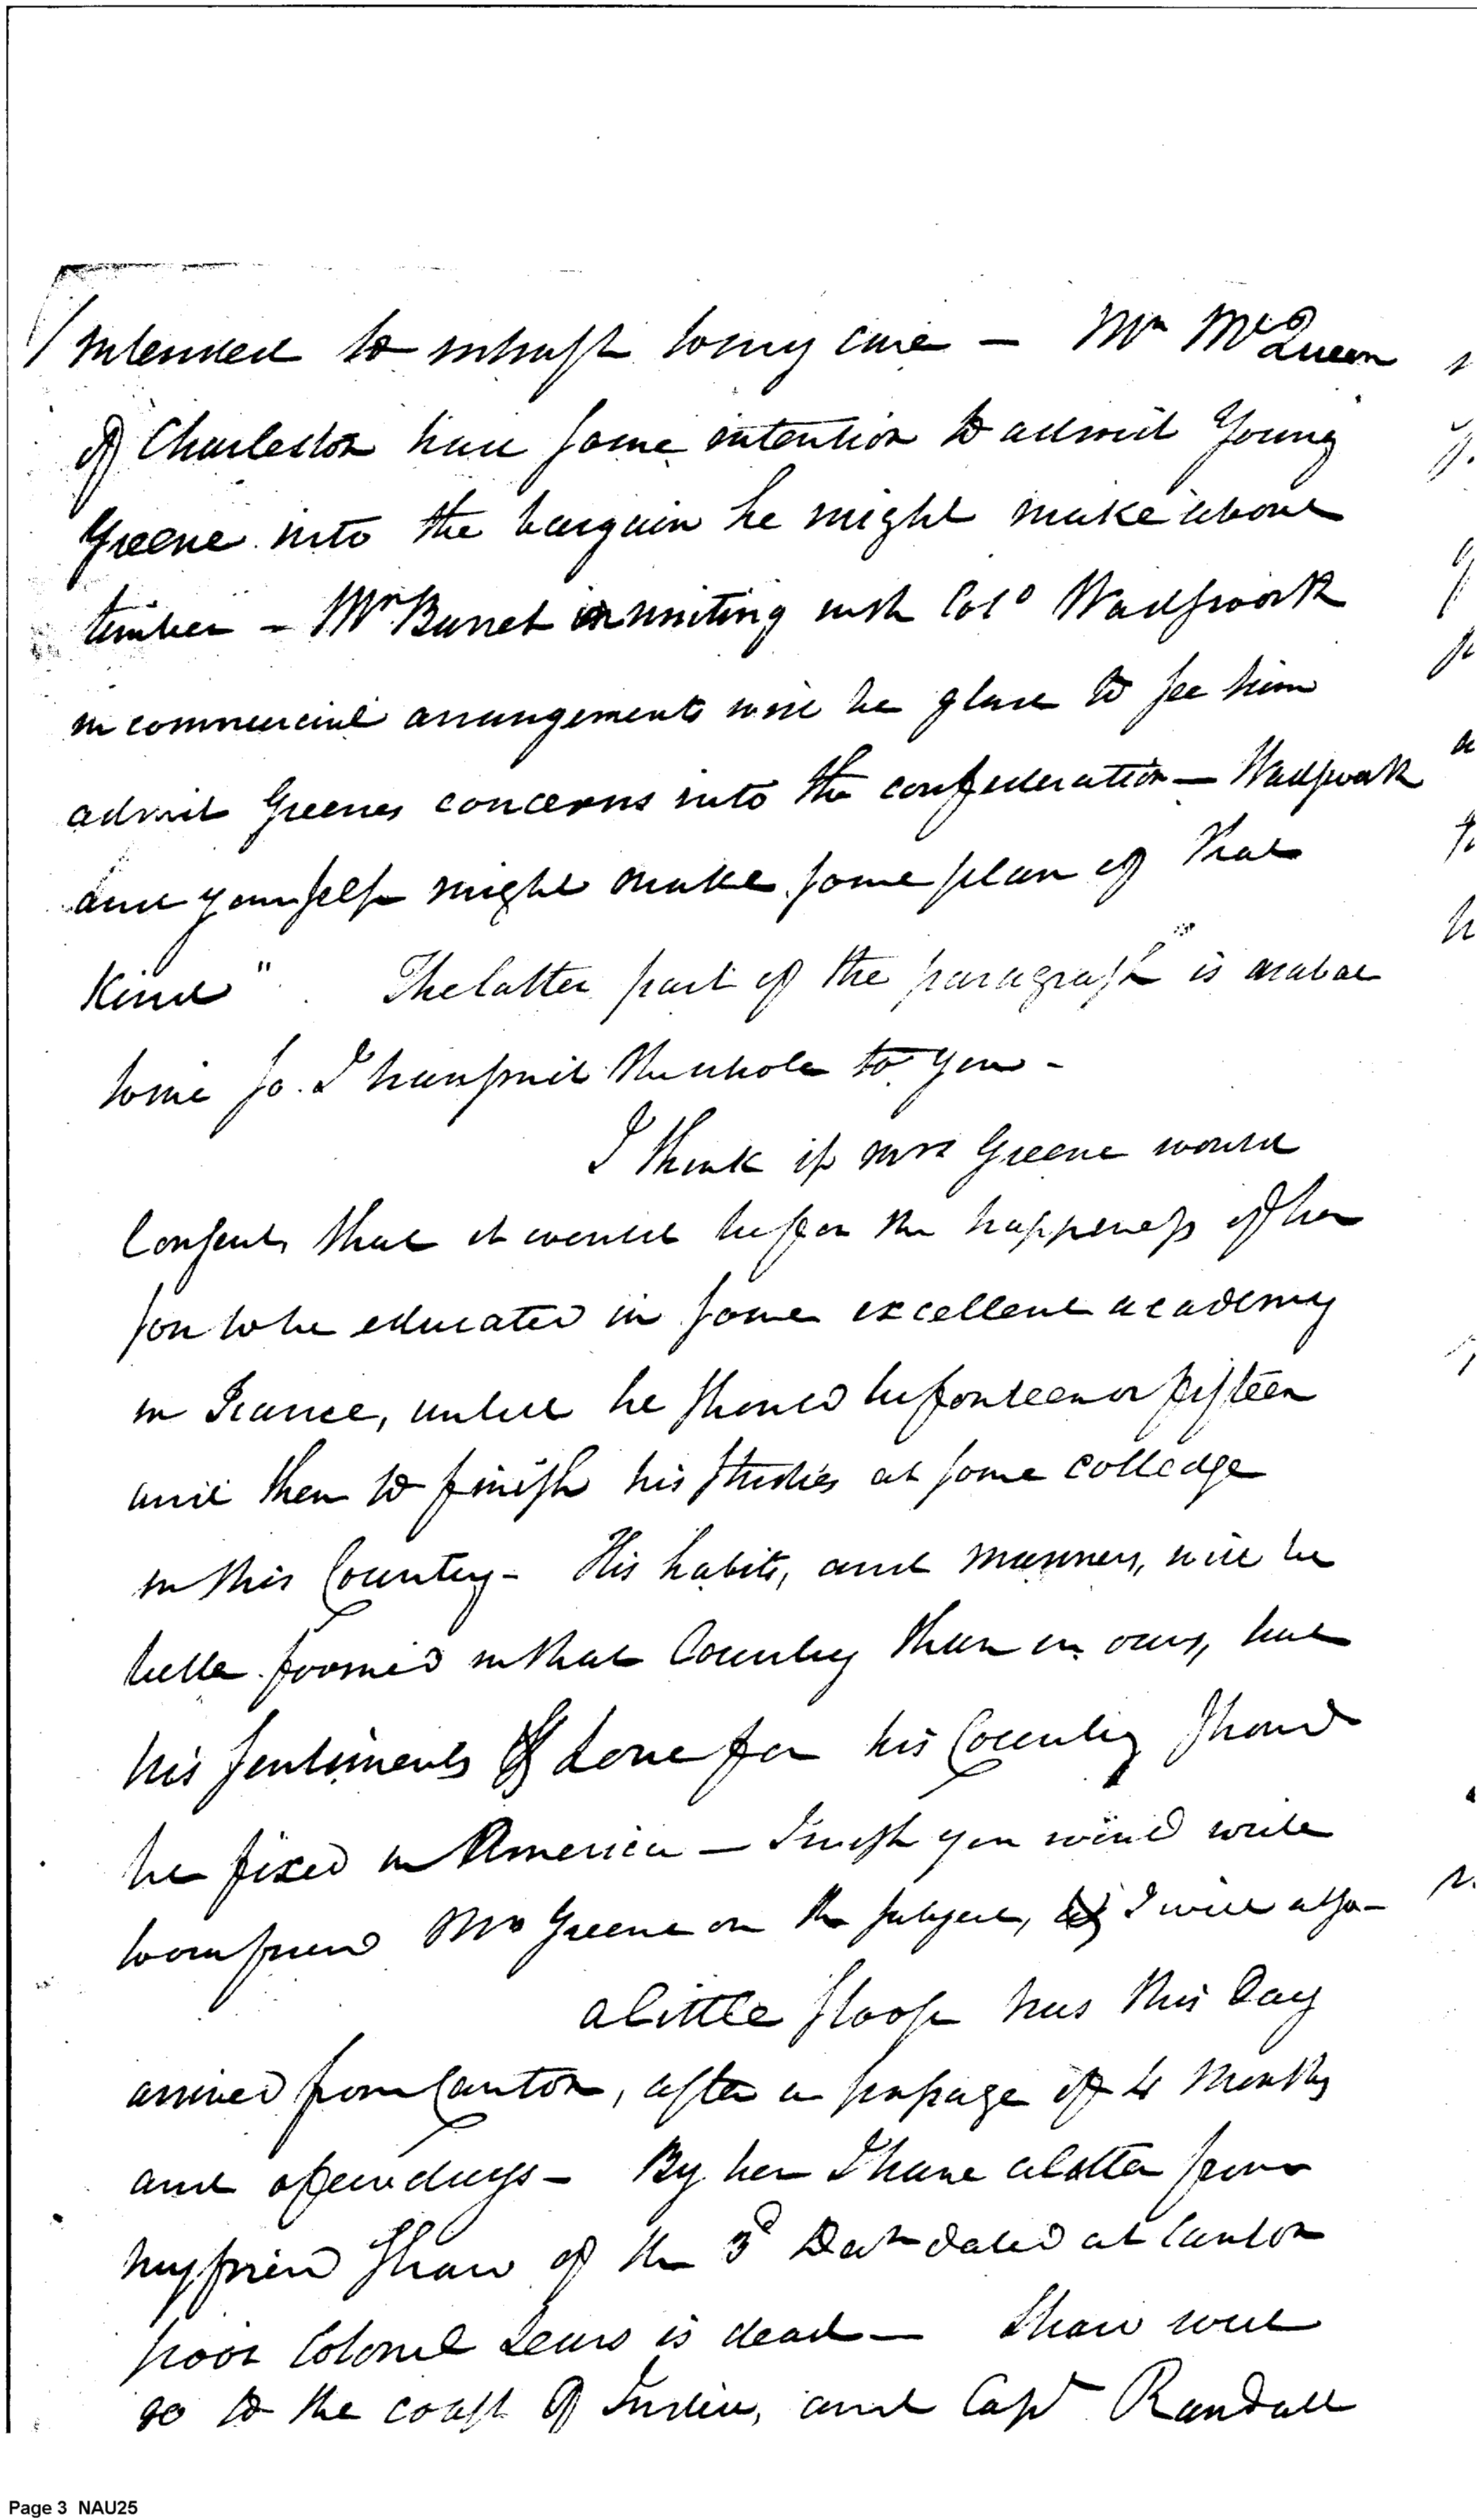 intended to intrust to my care — Mr McQueen
of Charleston had some intention to admit Young
Greene into the bargain he might make about
timber — Mr Barret in uniting with Colo Wadsworth
in commercial arrangements will be glad to see him
admit Greenes concerns into the confederation — Wadsworth
and yourself might make some plan of that
kind" The latter part of the paragraph is
to me so I transmit the whole to you —
I think if Mrs Greene would
Consent, that it would be for the happiness of her
son to be educated in some excellent academy
in France, untill he should be fourteen or fifteen
and then to finish his studies at some colledge
in this Country — His habits, and manners, will be
better formed in that Country than in ours, but
his sentiments of Love for his Country should
be fixed in America — I wish you would write
to our friend Mrs Greene on the subject, I will also —
a little sloop has this day
arrived from Canton, after a passage of 4 Months
and a few days — By her I have a letter from
my friend Shaw of the 3d dated at Canton
poor Colonel Sears is dead — Shaw will
go to the coast of India, and Capt Randall
Page 3 NAU25